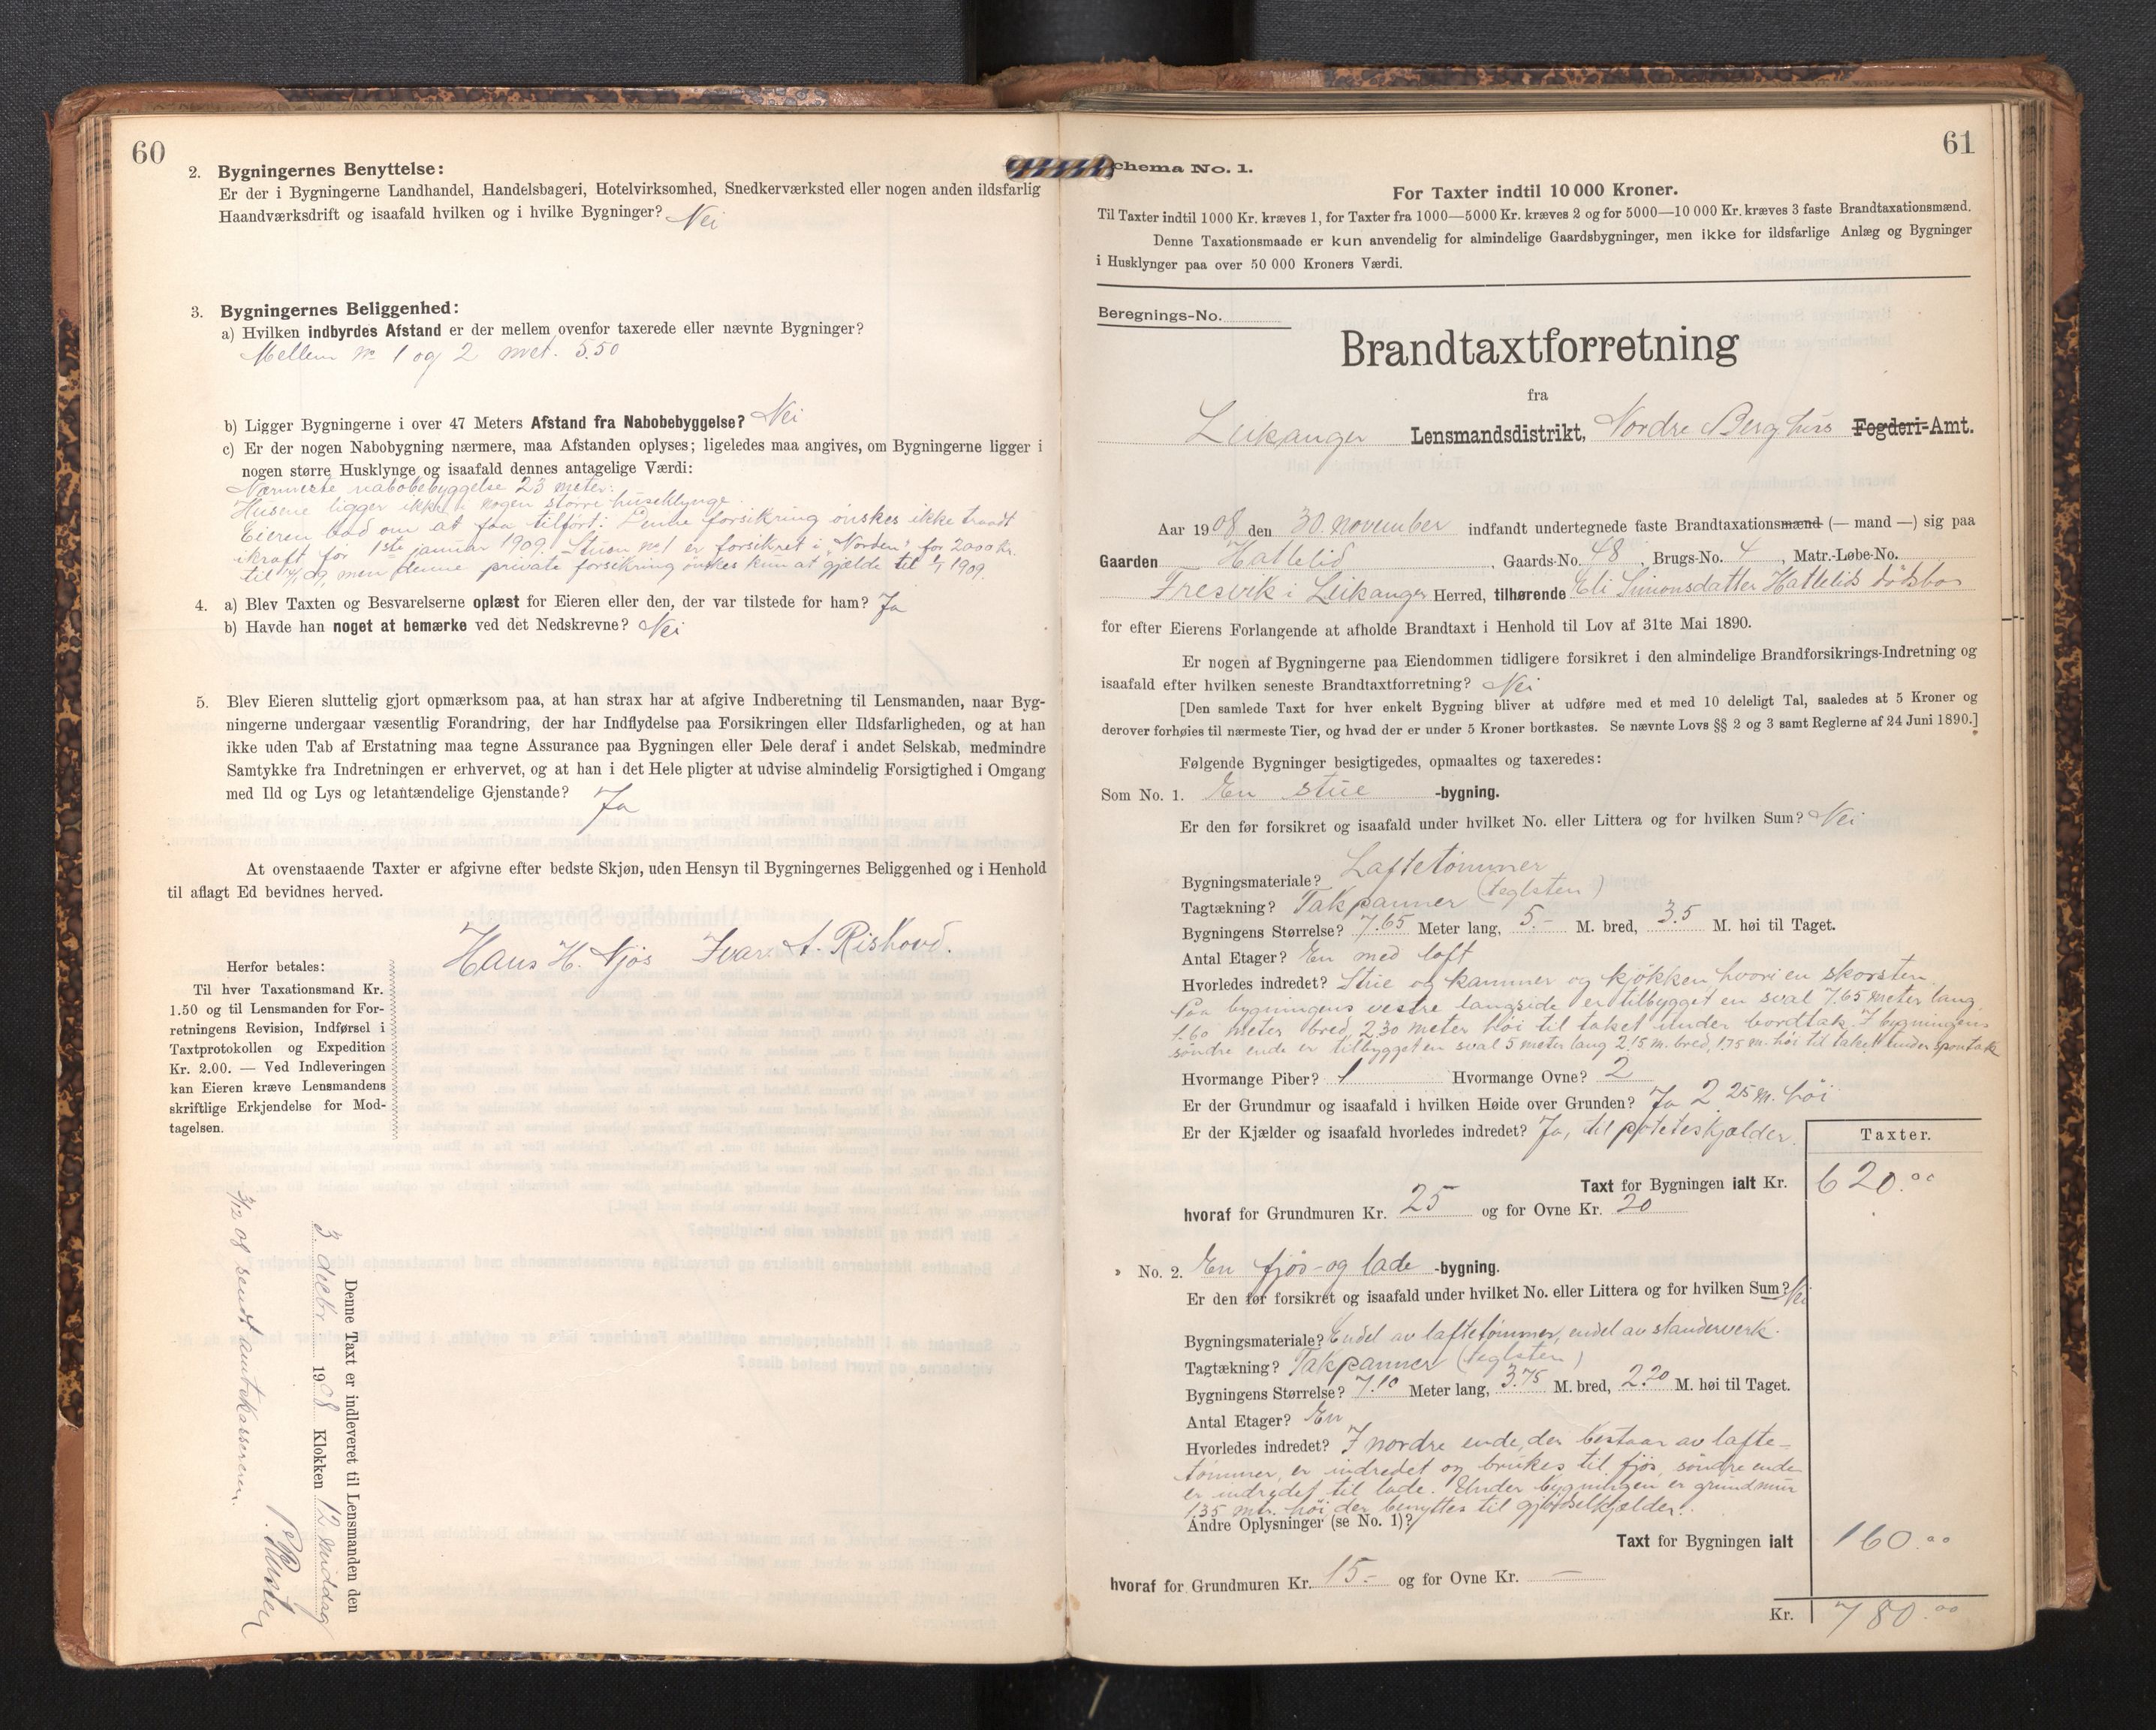 60
2. Bygningernes Benyttelse:
Er der i Bygningerne Landhandel, Handelsbageri, Hotelvirksomhed, Snedkerværksted eller nogen anden ildsfarlig
Haandværksdrift og isaafald hvilken og i hvilke Bygninger? Nei
3. Bygningernes Beliggenhed:
a) Hvilken indbyrdes Afstand er der mellem ovenfor taxerede eller nævnte Bygninger?
Mellem No 1 og 2 met. 5.50
b) Ligger Bygningerne i over 47 Meters Afstand fra Nabobebyggelse? Nei
c) Er der nogen Nabobygning nærmere, maa Afstanden oplyses; ligeledes maa angives, om Bygningerne ligger i
nogen større Husklynge og isaafald dennes antagelige Værdi:
Nærmeste nabobebyggelse 23 meter.
Husene ligger ikke i nogen større huseklynge.
Eieren bad om at faa tilført: Denne forsikring ønskes ikke traadt
ikraft før 1ste januar 1909. Stuen No 1 er forsikret i „Norden" for 2000 kr.
til 14/ 09, men denne private forsikring ønskes kun at gjælde til 1/1 1909.
4. a) Blev Taxten og Besvarelserne oplæst for Eieren eller den, der var tilstede for ham? Ja
b) Havde han noget at bemærke ved det Nedskrevne? Nei
5. Blev Eieren sluttelig gjort opmærksom paa, at han strax har at afgive Indberetning til Lensmanden, naar Byg-
ningerne undergaar væsentlig Forandring, der har Indflydelse paa Forsikringen eller Ildsfarligheden, og at han
ikke uden Tab af Erstatning maa tegne Assurance paa Bygningen eller Dele deraf i andet Selskab, medmindre
Samtykke fra Indretningen er erhvervet, og at han i det Hele pligter at udvise almindelig Forsigtighed i Omgang
med Ild og Lys og letantændelige Gjenstande? Ja
At ovenstaaende Taxter er afgivne efter bedste Skjøn, uden Hensyn til Bygningernes Beliggenhed og i Henhold
til aflagt Ed bevidnes herved.
Hans H. Njøs Ivar A. Rishovd.
Herfor betales:
Til hver Taxationsmand Kr.
1.50 og til Lensmanden for For-
retningens Revision, Indførsel i
Taxtprotokollen og Expedition
Kr. 2.00. — Ved Indleveringen
kan Eieren kræve Lensmandens
skriftlige Erkjendelse for Mod-
tagelsen.
Denne Taxt er indleveret til Lensmanden den
3. decbr 1908 Klokken 12 middag
3/12 08 sendt amtskassereren.
61
Schema No. 1.
For Taxter indtil 10 000 Kroner.
Til Taxter indtil 1000 Kr. kræves 1, for Taxter fra 1000—5000 Kr. kræves 2 og for 5000—10 000 Kr. kræves 3 faste Brandtaxationsmænd.
Denne Taxationsmaade er kun anvendelig for almindelige Gaardsbygninger, men ikke for ildsfarlige Anlæg og Bygninger
i Husklynger paa over 50 000 Kroners Værdi.
Beregnings-No.
Brandtaxtforretning
fra
Leikanger Lensmandsdistrikt, Nordre Berghus Fogderi-Amt.
Aar 1908 den 30. november indfandt undertegnede faste Brandtaxationsmænd (— mand —) sig paa
Gaarden Hattelid, Gaards-No. 48, Brugs-No. 4, Matr.-Løbe-No.
Fresvik i Leikanger Herred, tilhørende Eli Simonsdatter Hattelids dødsbo
for efter Eierens Forlangende at afholde Brandtaxt i Henhold til Lov af 31te Mai 1890.
Er nogen af Bygningerne paa Eiendommen tidligere forsikret i den almindelige Brandforsikrings-Indretning og
isaafald efter hvilken seneste Brandtaxtforretning? Nei
[Den samlede Taxt for hver enkelt Bygning bliver at udføre med et med 10 deleligt Tal, saaledes at 5 Kroner og
derover forhøies til nærmeste Tier, og hvad der er under 5 Kroner bortkastes. Se nævnte Lovs §§ 2 og 3 samt Reglerne af 24 Juni 1890.]
Følgende Bygninger besigtigedes, opmaaltes og taxeredes:
Som No. 1. En stue -bygning.
Er den før forsikret og isaafald under hvilket No. eller Littera og for hvilken Sum? Nei
Bygningsmateriale? Laftetømmer
Tagtækning? Takpanner (teglsten)
Bygningens Størrelse? 7.65 Meter lang, 5.- M. bred, 3.5 M. høi til Taget.
Antal Etager? En med loft
Hvorledes indredet? Stue og kammer og kjøkken, hvori en skorsten.
Paa bygningens vestre langside er tilbygget en sval 7.65 meter lang
1.60 meter bred, 2.30 meter høi til taket under bordtak. I bygningens
søndre ende er tilbygget en sval 5 meter lang 2.15 m. bred, 1.75 m. høi til taket under spontak
Hvormange Piber? 1 Hvormange Ovne? 2
Er der Grundmur og isaafald i hvilken Høide over Grunden? Ja 2.25 m. høi
Er der Kjælder og isaafald hvorledes indredet? Ja, til poteteskjælder.
Taxter.
Taxt for Bygningen ialt Kr. 620.00
hvoraf for Grundmuren Kr. 25 og for Ovne Kr. 20
» No. 2. En fjøs- og lade -bygning.
Er den før forsikret og isaafald under hvilket No. eller Littera og for hvilken Sum? Nei
Bygningsmateriale? Endel av laftetømmer, endel av standerverk.
Tagtækning? Takpanner (teglsten)
Bygningens Størrelse? 7.10 Meter lang, 3.75 M. bred, 2.20 M. høi til Taget.
Antal Etager? En
Hvorledes indredet? I nordre ende, der bestaar av lafte-
tømmer, er indredet og brukes til fjøs, søndre ende
er indredet til lade. Under bygningen er grundmur
1.35 mtr. høi der benyttes til gjødselkjælder.
Andre Oplysninger (se No. 1)?
Taxt for Bygningen ialt 160.00
hvoraf for Grundmuren Kr. 15.- og for Ovne Kr. —
Kr. 780.00